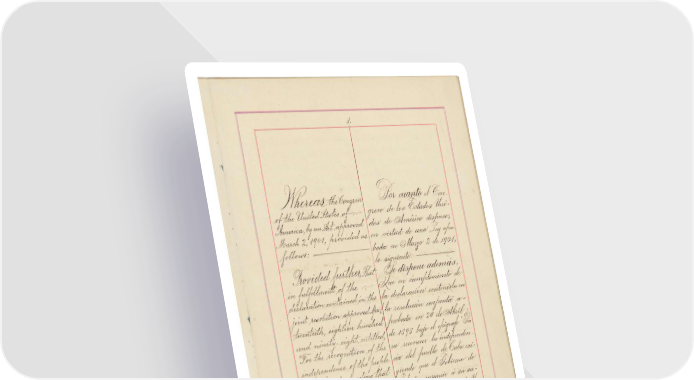 1.
Whereas the Congress
of the United States of
America, by an Act approved
March 2, 1901, provided as
follows:
Provided further, That
in fulfillment of the
declaration contained in the
joint resolution approved April
twentieth, eighteen hundred
and ninety-eight, entitled
"For the recognition of the
independence of the people
Por cuanto el Con-
greso de los Estados Uni-
dos de América dispuso,
en virtud de una ley apro-
bada en Marzo 2 de 1901,
lo siguiente:
Se dispone además,
Que en cumplimiento de
la declaración contenida en
la resolución conjunta a-
probada en 20 de Abril
de 1898 bajo el epígrafe
independen
cia del pueblo de Cuba
que el Gobierno de